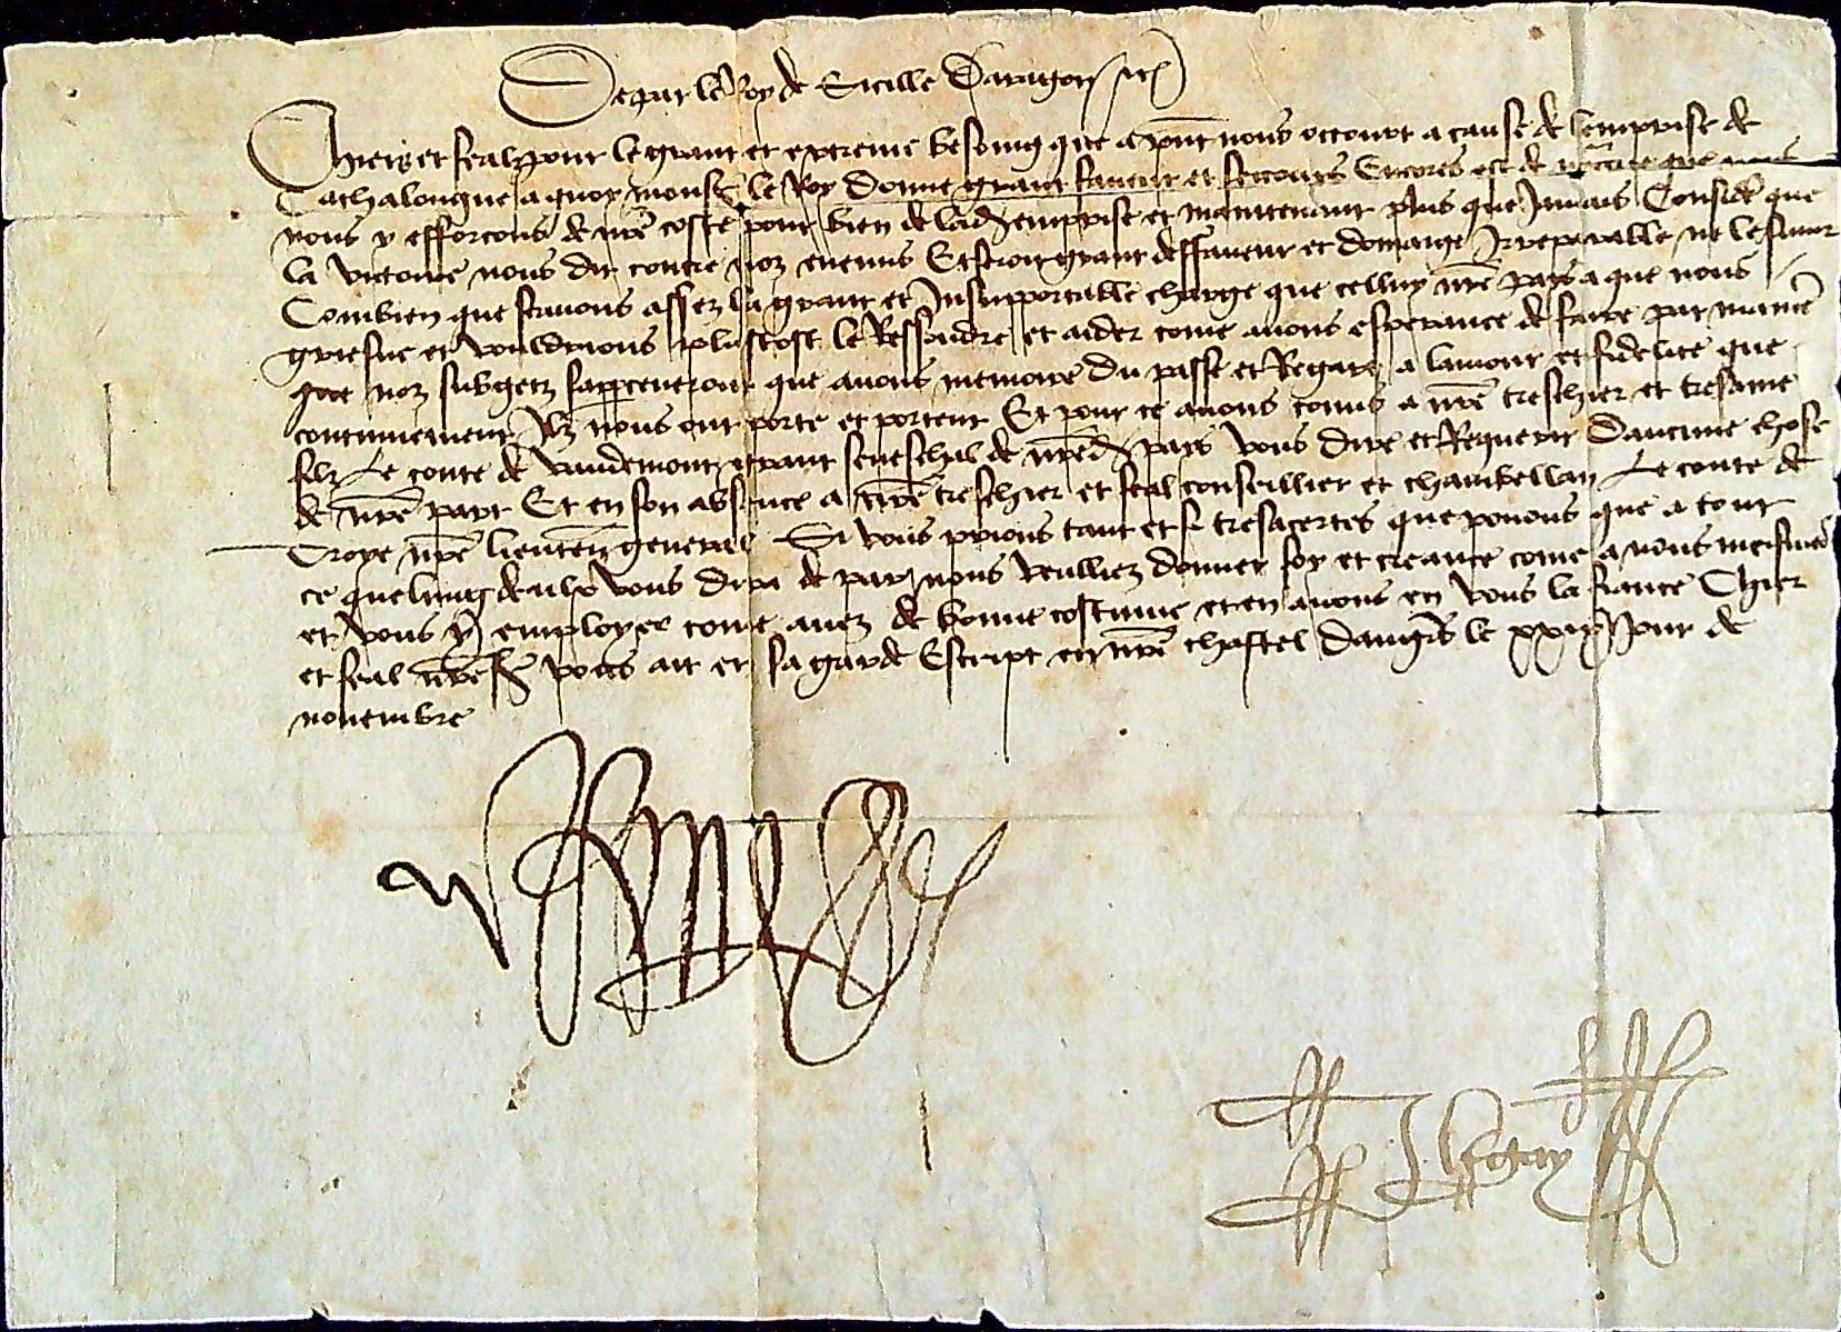 De par le Roy de Sicille Daragon etc
Chiers et feal pour le grant et extreme besoing que a pnt nous occourt a cause de lemprise de
Cathalongne a quoy mons le Roy donne grant faveur et secours Encores est de que nous
nous y efforcons de nre coste pour bien de lad emprise et maintenant plus que Jamais Consider que
la victoire nous dit contre noz enemis Et seroit grant deffaveur et domaige Irreparable ne le
Combien que scavons assez la grant et Insupportable charge que celluy nre pays a que nous
griefue et vouldrions plustost le Ressoudre et aider come avons esperance de faire par maniere
que noz subgetz sapperceuront que avons memoire du passe et Regart a lamour et fidelite que
continuement Ilz nous ont porte et portent Et pour ce avons comis a nre treschier et tresame
filz Le conte de Vaudemont grant seneschal de nred pays vous dire et Requerir Daucune chose
de nre part Et en son absence a nre treschier et feal conseillier et chambellan Le conte de
Troye nre lieuten general Si vous prions tant et si tresacertes que povons que a tout
ce que lung deulx vous dira de par nous veulliez donner foy et creance come a nous meismes
et vous y employer come avez de bonne costume et en avons en vous la fiance Chier
et feal nres vous ait en sa garde Escript en nre chastel Dangers le xxix Jour de
novembre
Legay